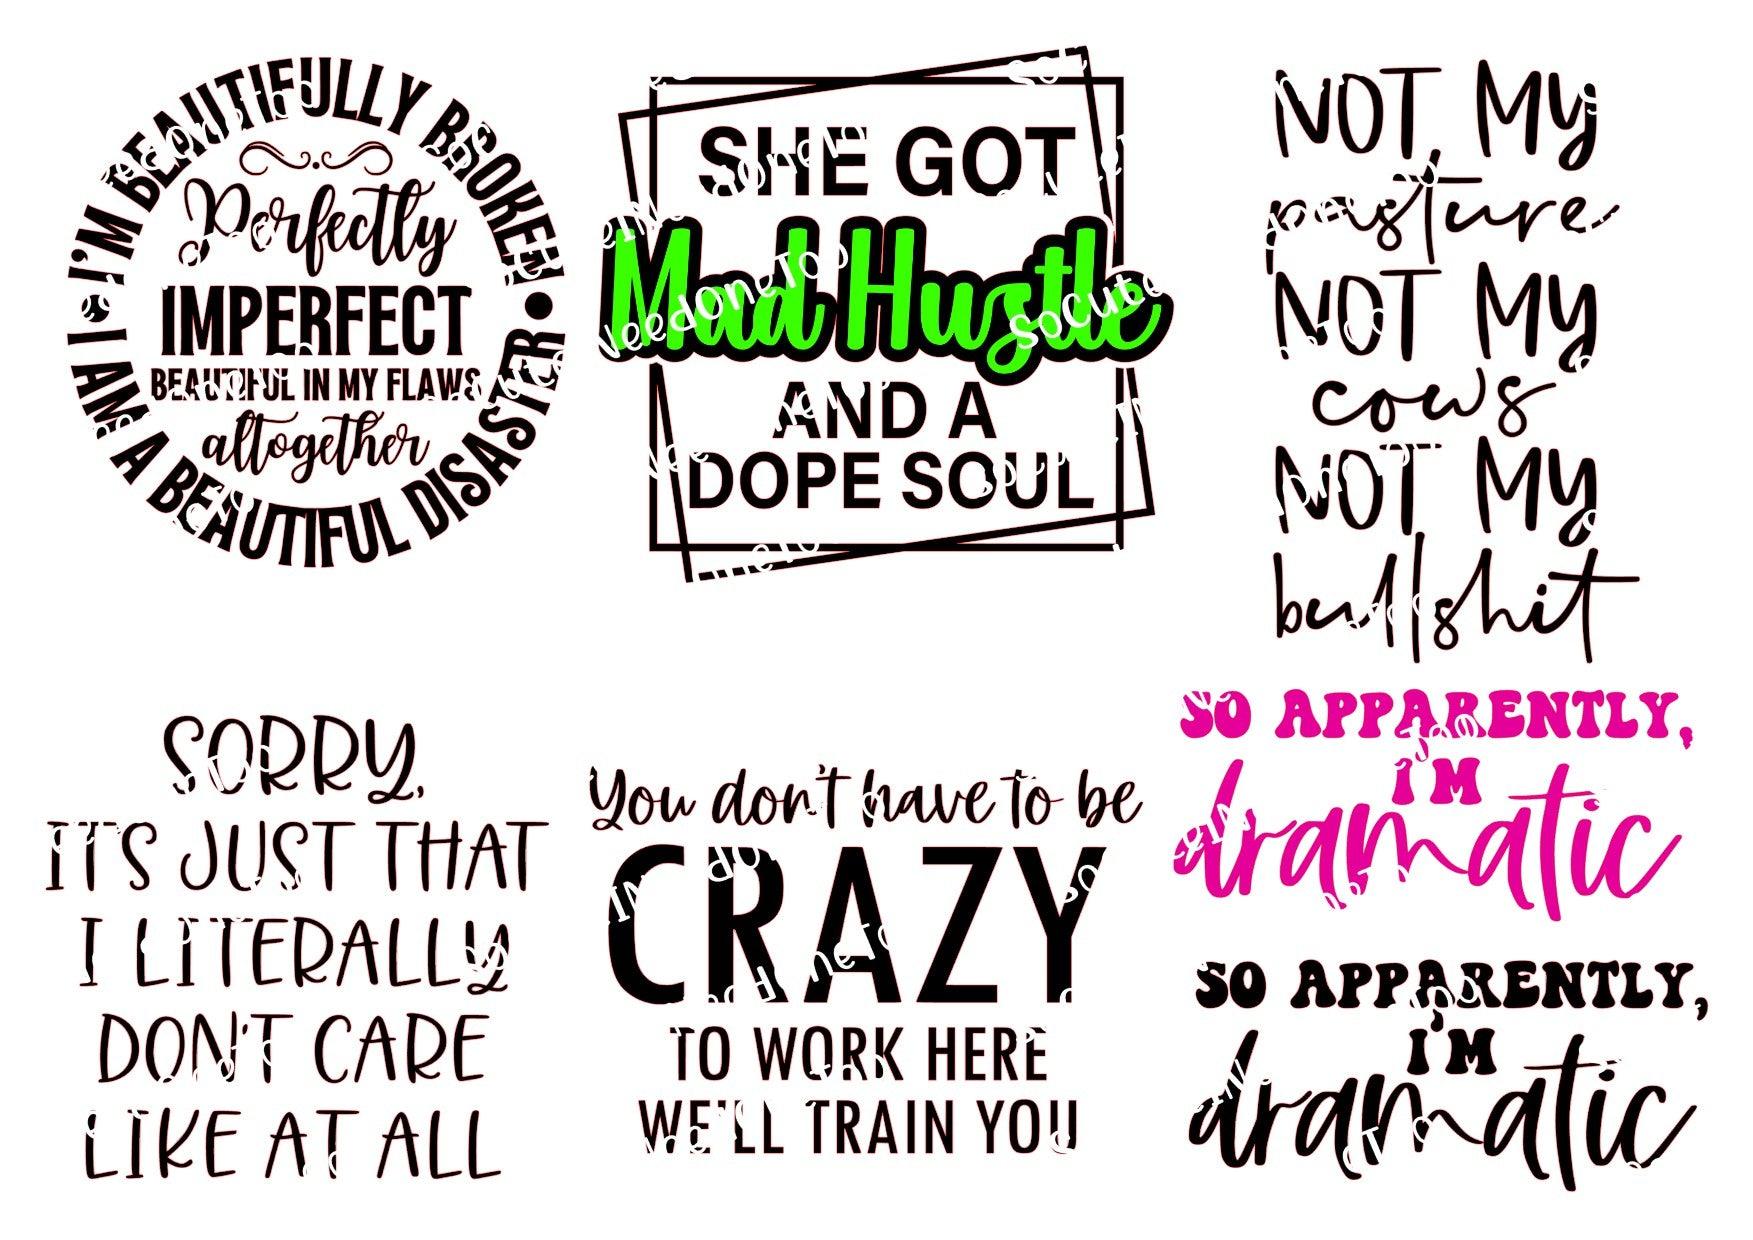 I'M BEAUTIFULLY BROKEN
Perfectly
IMPERFECT
BEAUTIFUL IN MY FLAWS
altogether
I AM A BEAUTIFUL DISASTER
SHE GOT
Mad Hustle
AND A
DOPE SOUL
NOT MY
pasture
NOT MY
cows
NOT MY
bullshit
SORRY,
IT'S JUST THAT
I LITERALLY
DON'T CARE
LIKE AT ALL
You don't have to be
CRAZY
TO WORK HERE
WE'LL TRAIN YOU
SO APPARENTLY,
I'M
dramatic
SO APPARENTLY,
I'M
dramatic
SoCuteINeedOneToo